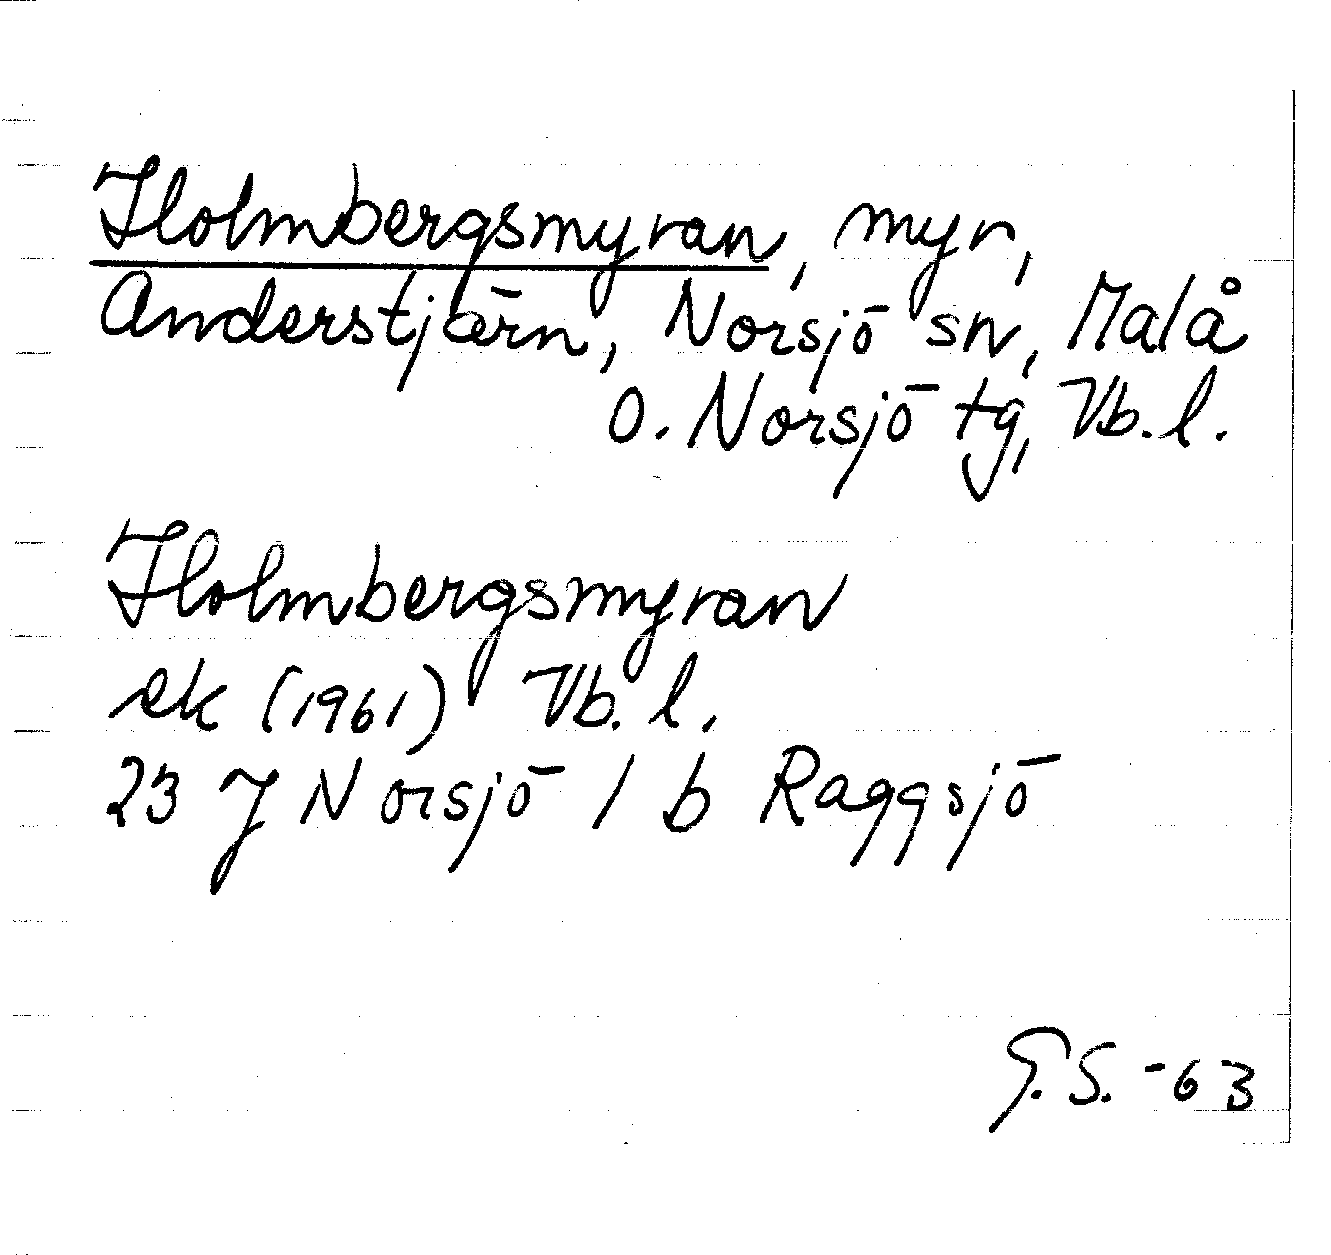 Holmbergsmyran, myr,
Anderstjärn, Norsjö sn, Malå
o. Norsjö tg, Vb. l.
Holmbergsmyran
ek (1961) Vb. l.
23 J Norsjö 1 b Raggsjö
G.S. -63